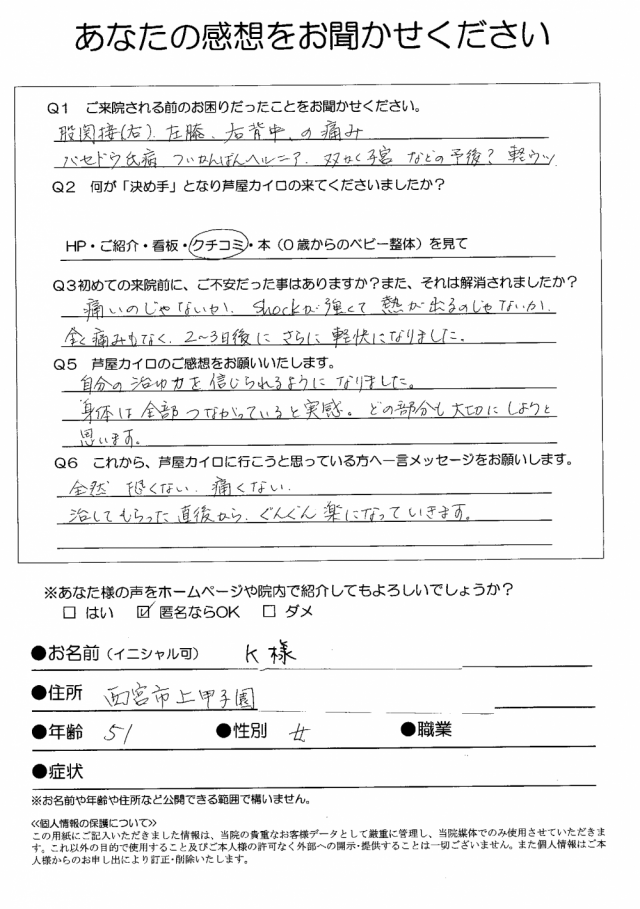 あなたの感想をお聞かせください
Q1 ご来院される前のお困りだったことをお聞かせください。
股関接(右)、左膝、右背中、の痛み
バセドウ氏病 ついかんばんヘルニア、双かく子宮 などの予後? 軽ウツ
Q2 何が「決め手」となり芦屋カイロの来てくださいましたか?
HP・ご紹介・看板・クチコミ・本(0歳からのベビー整体)を見て
Q3初めての来院前に、ご不安だった事はありますか?また、それは解消されましたか?
痛いのじゃないか、Shockが強くて熱が出るのじゃないか、
全く痛みもなく、2〜3日後に さらに 軽快になりました。
Q5 芦屋カイロのご感想をお願いいたします。
自分の治ゆ力を信じられるように なりました。
身体は全部つながっていると実感。どの部分も大切にしようと
思います。
Q6 これから、芦屋カイロに行こうと思っている方へ一言メッセージをお願いします。
全然 恐くない、痛くない、
治してもらった直後から、ぐんぐん楽になっていきます。
※あなた様の声をホームページや院内で紹介してもよろしいでしょうか?
□ はい ☑ 匿名ならOK □ ダメ
●お名前(イニシャル可) K様
●住所 西宮市上甲子園
●年齢 51 ●性別 女 ●職業
●症状
※お名前や年齢や住所など公開できる範囲で構いません。
≪個人情報の保護について≫
この用紙にご記入いただきました情報は、当院の貴重なお客様データとして厳重に管理し、当院媒体でのみ使用させていただきま
す。これ以外の目的で使用すること及びご本人様の許可なく外部への開示・提供することは一切ございません。また個人情報はご本
人様からのお申し出により訂正・削除いたします。